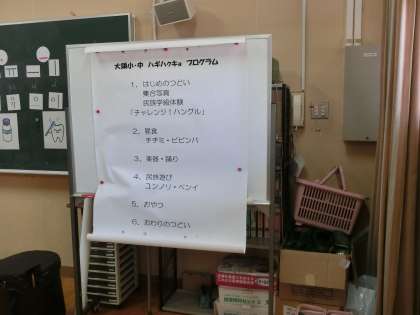 大領小・中 ハギハッキョ プログラム
1、はじめのつどい
集合写真
民族学級体験
「チャレンジ!ハングル」
2、昼食
チヂミ・ビビンバ
3、楽器・踊り
4、民族遊び
ユンノリ・ペンイ
5、おやつ
6、おわりのつどい